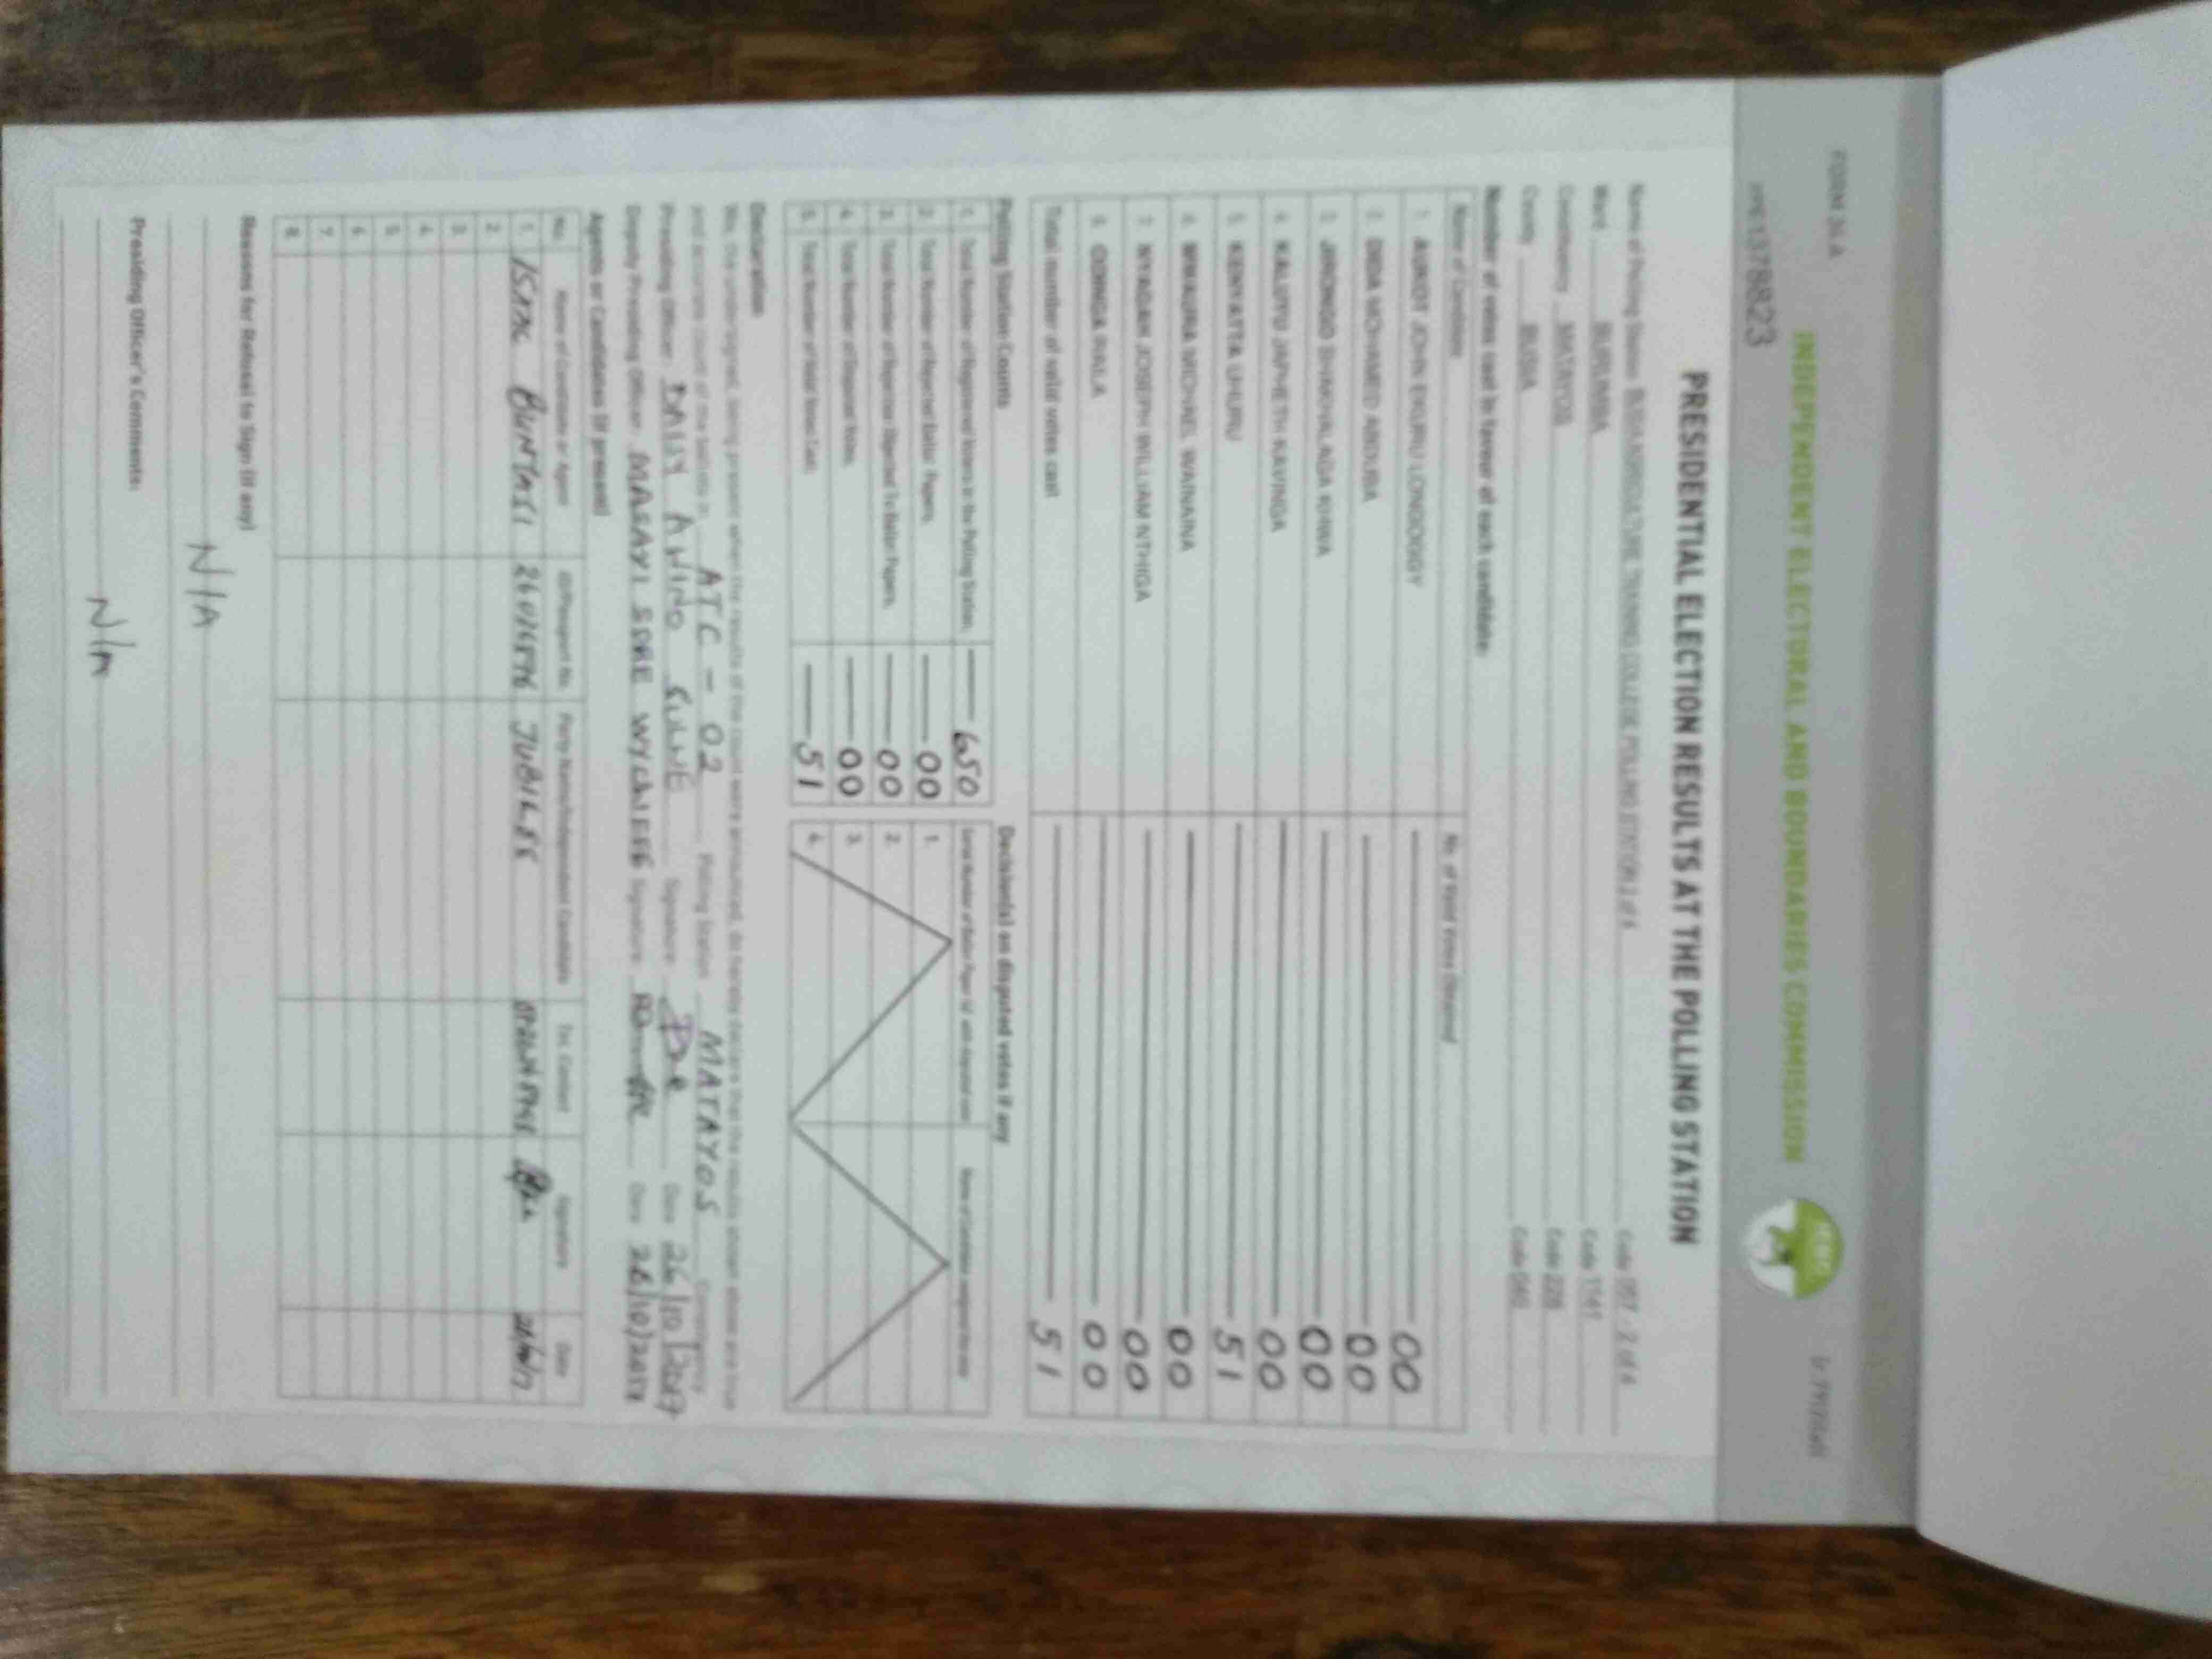 FORM 34 A
INDEPENDENT ELECTORAL AND BOUNDARIES COMMISSION
PRESIDENTIAL ELECTION RESULTS AT THE POLLING STATION
Name of Polling Station TRAINING COLLEGE POLLING STATION 2 of 6 Code 2 of 6
Ward BURUMBA Code 1141
Constituency MATAYOS Code 228
County BUSIA Code 040
Number of votes cast in favour of each candidate:
Name of Candidate No. of Valid Votes Obtained
1. AUKOT JOHN EKURU LONGOGGY 00
2. DIDA MOHAMED ABDUBA 00
3. JIRONGO SHAKHALAGA KHWA 00
4. KALUYU JAPHETH KAVINGA 00
5. KENYATTA UHURU 51
6. MWAURA MICHAEL WAINAINA 00
7. NYAGAH JOSEPH WILLIAM NTHIGA 00
8. ODINGA RAILA 00
Total number of valid votes cast 51
Polling Station Counts
1. Total Number of Registered Voters in the Polling Station 650
2. Total Number of Rejected Ballot Papers 00
3. Total Number of Rejection Objected To Ballot Papers 00
4. Total Number of Disputed Votes 00
5. Total Number of Valid Votes Cast 51
Decision(s) on disputed votes if any
1.
2.
3.
4.
Declaration
We, the undersigned, being present when the results of the count were announced, do hereby declare that the results shown above are true
and accurate count of the ballots in ATC - 02 Polling Station MATAYOS Constituency
Presiding Officer Signature Date 26/10/2017
Deputy Presiding Officer MASAYI Signature Date 26/10/2017
Agents or Candidates (if present)
No. Name of Candidate or Agent ID/Passport No. Party Name/Independent Candidate Tel. Contact Signature Date
1. JUBILEE 26/10/17
2.
3.
4.
5.
6.
7.
8.
Reasons for Refusal to Sign (if any)
N/A
Presiding Officer's Comments:
N/A